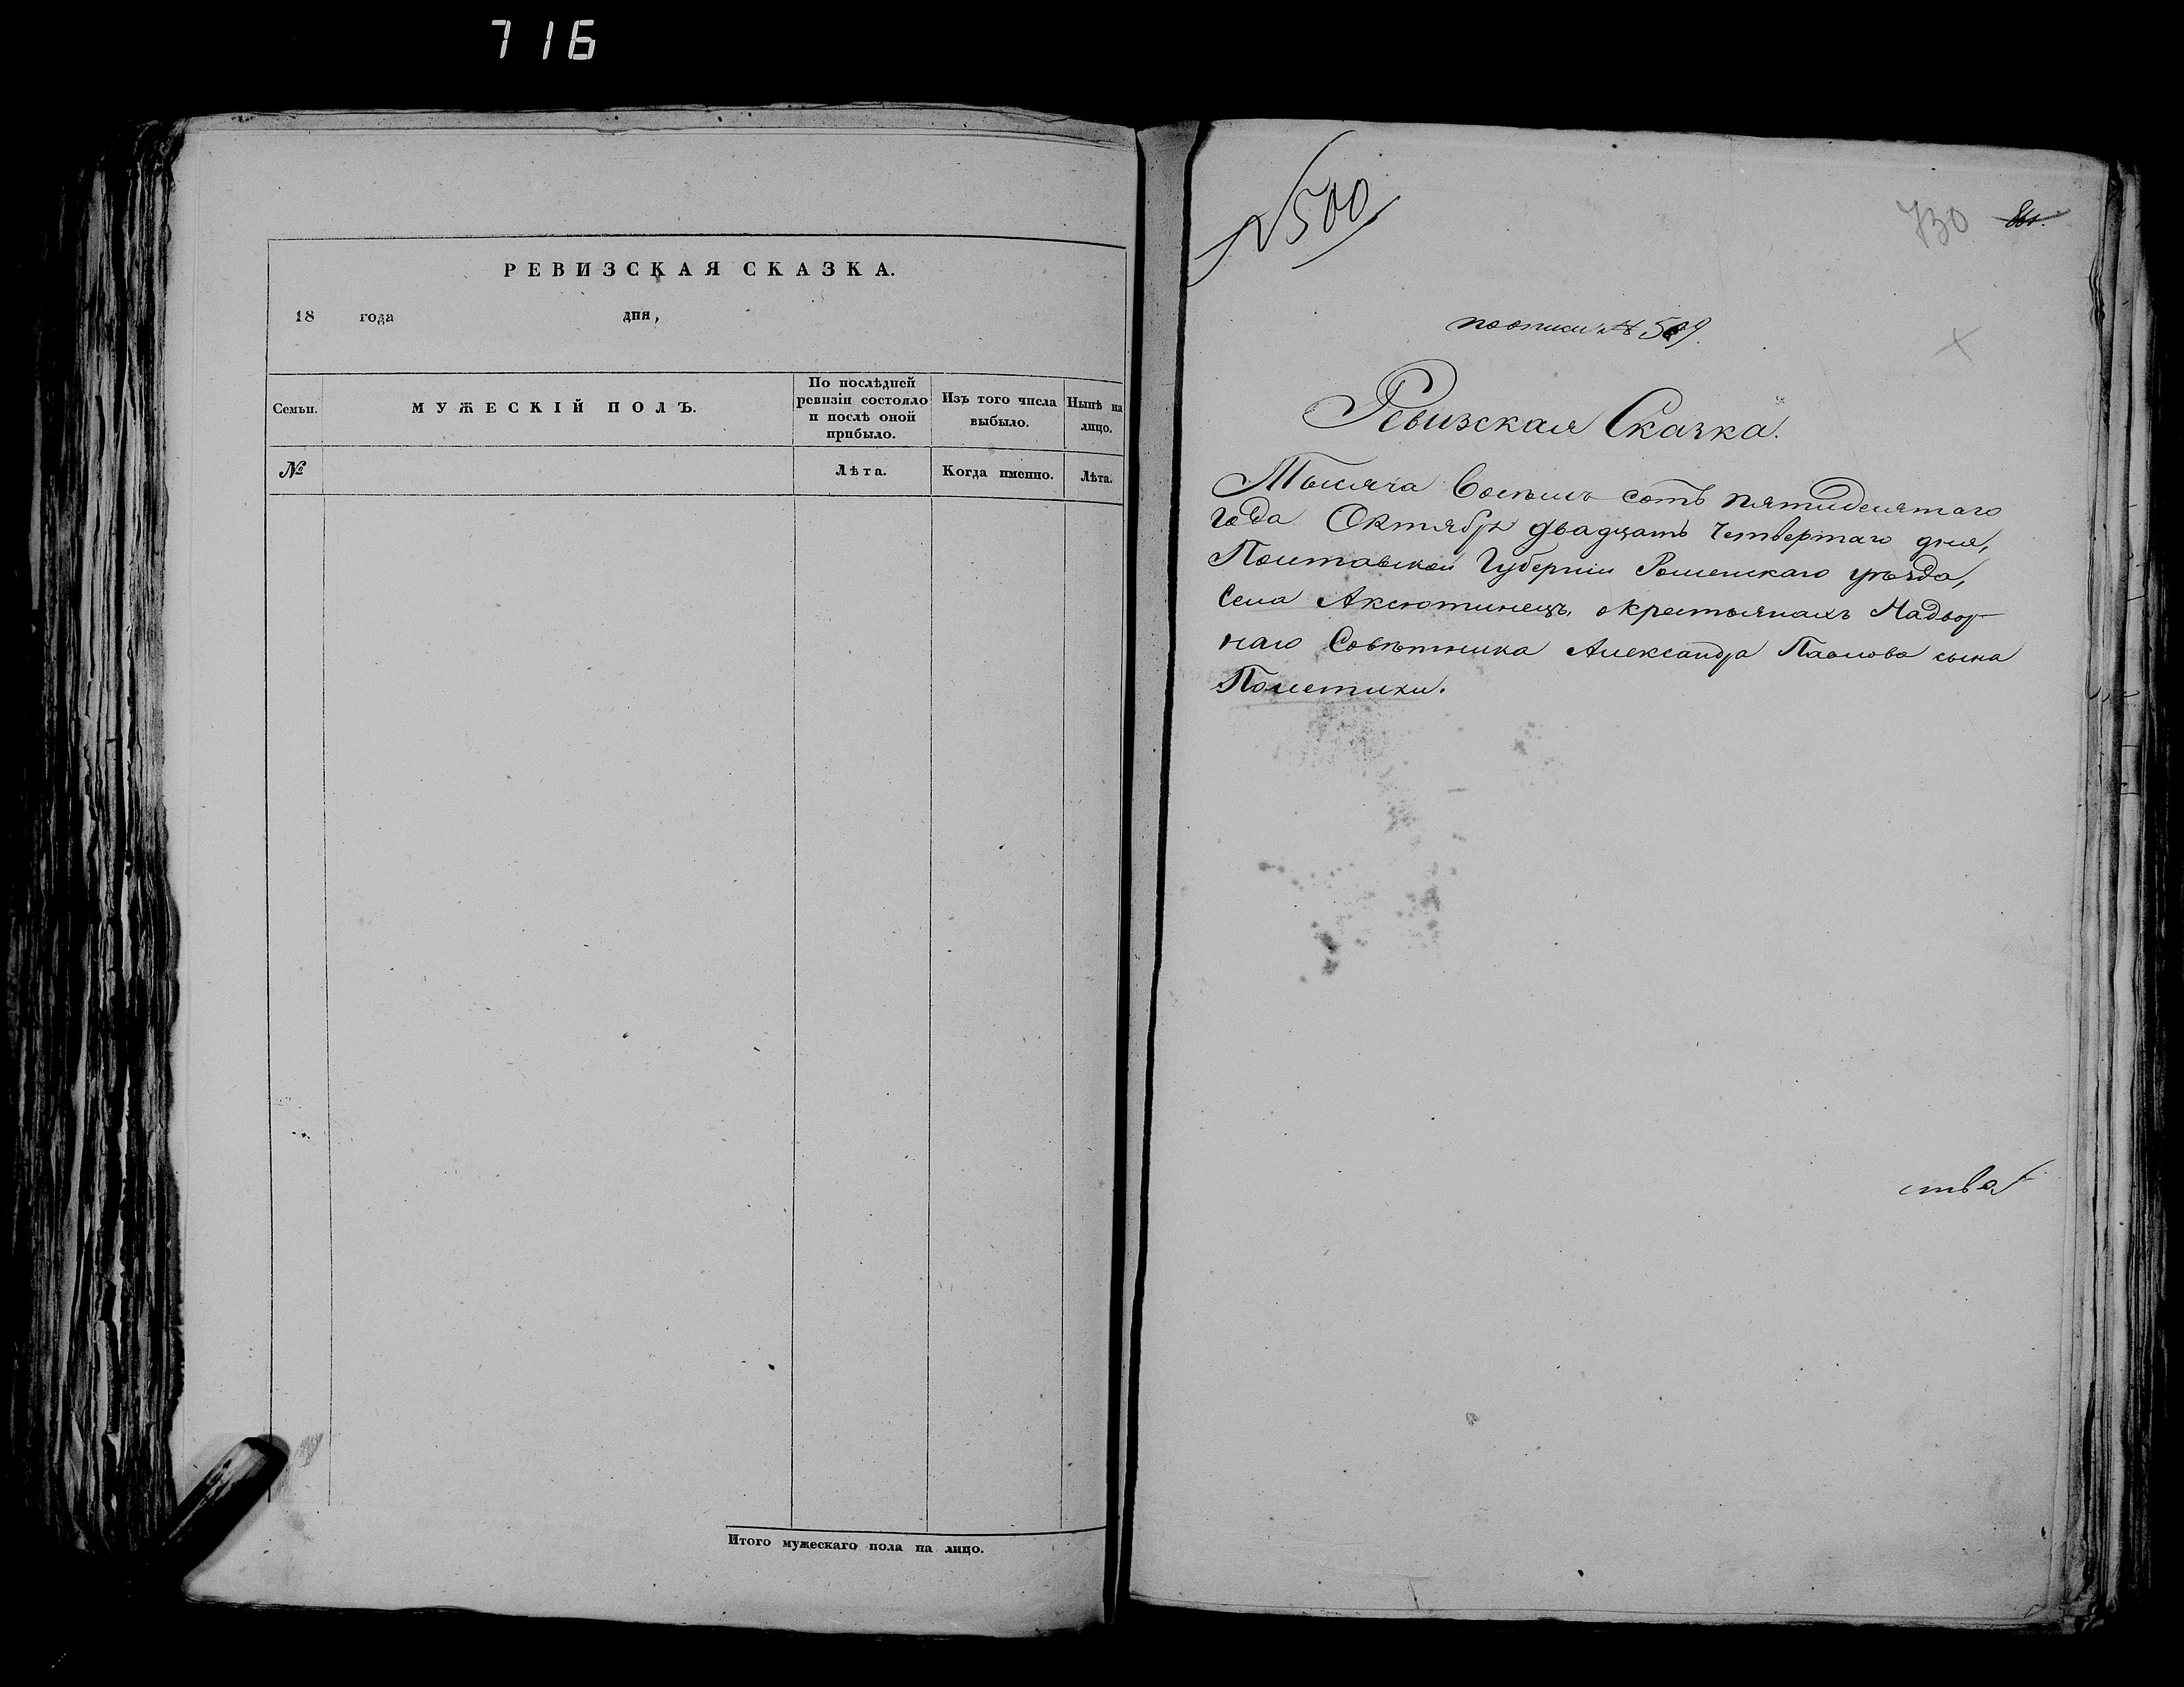 716
РЕВИЗСКАЯ СКАЗКА.
18 года дня,
Семьи.
МУЖЕСКІЙ ПОЛЪ.
По послѣдней
ревизіи состояло
и послѣ оной
прибыло.
Изъ того числа
выбыло.
Нынѣ на
лицо.
№
Лѣта.
Когда именно.
Лѣта.
Итого мужескаго пола на лицо.
№ 500
730
по описи № 509.
Ревизская Сказка.
Тысяча восемь сотъ пятидесятаго
года Октября двадцать четвертаго дня,
Полтавской Губерніи Роменскаго уѣзда,
Села Аксютинецъ, о крестьянахъ Надвор-
наго Совѣтника Александра Павлова сына
Полетики.
ства